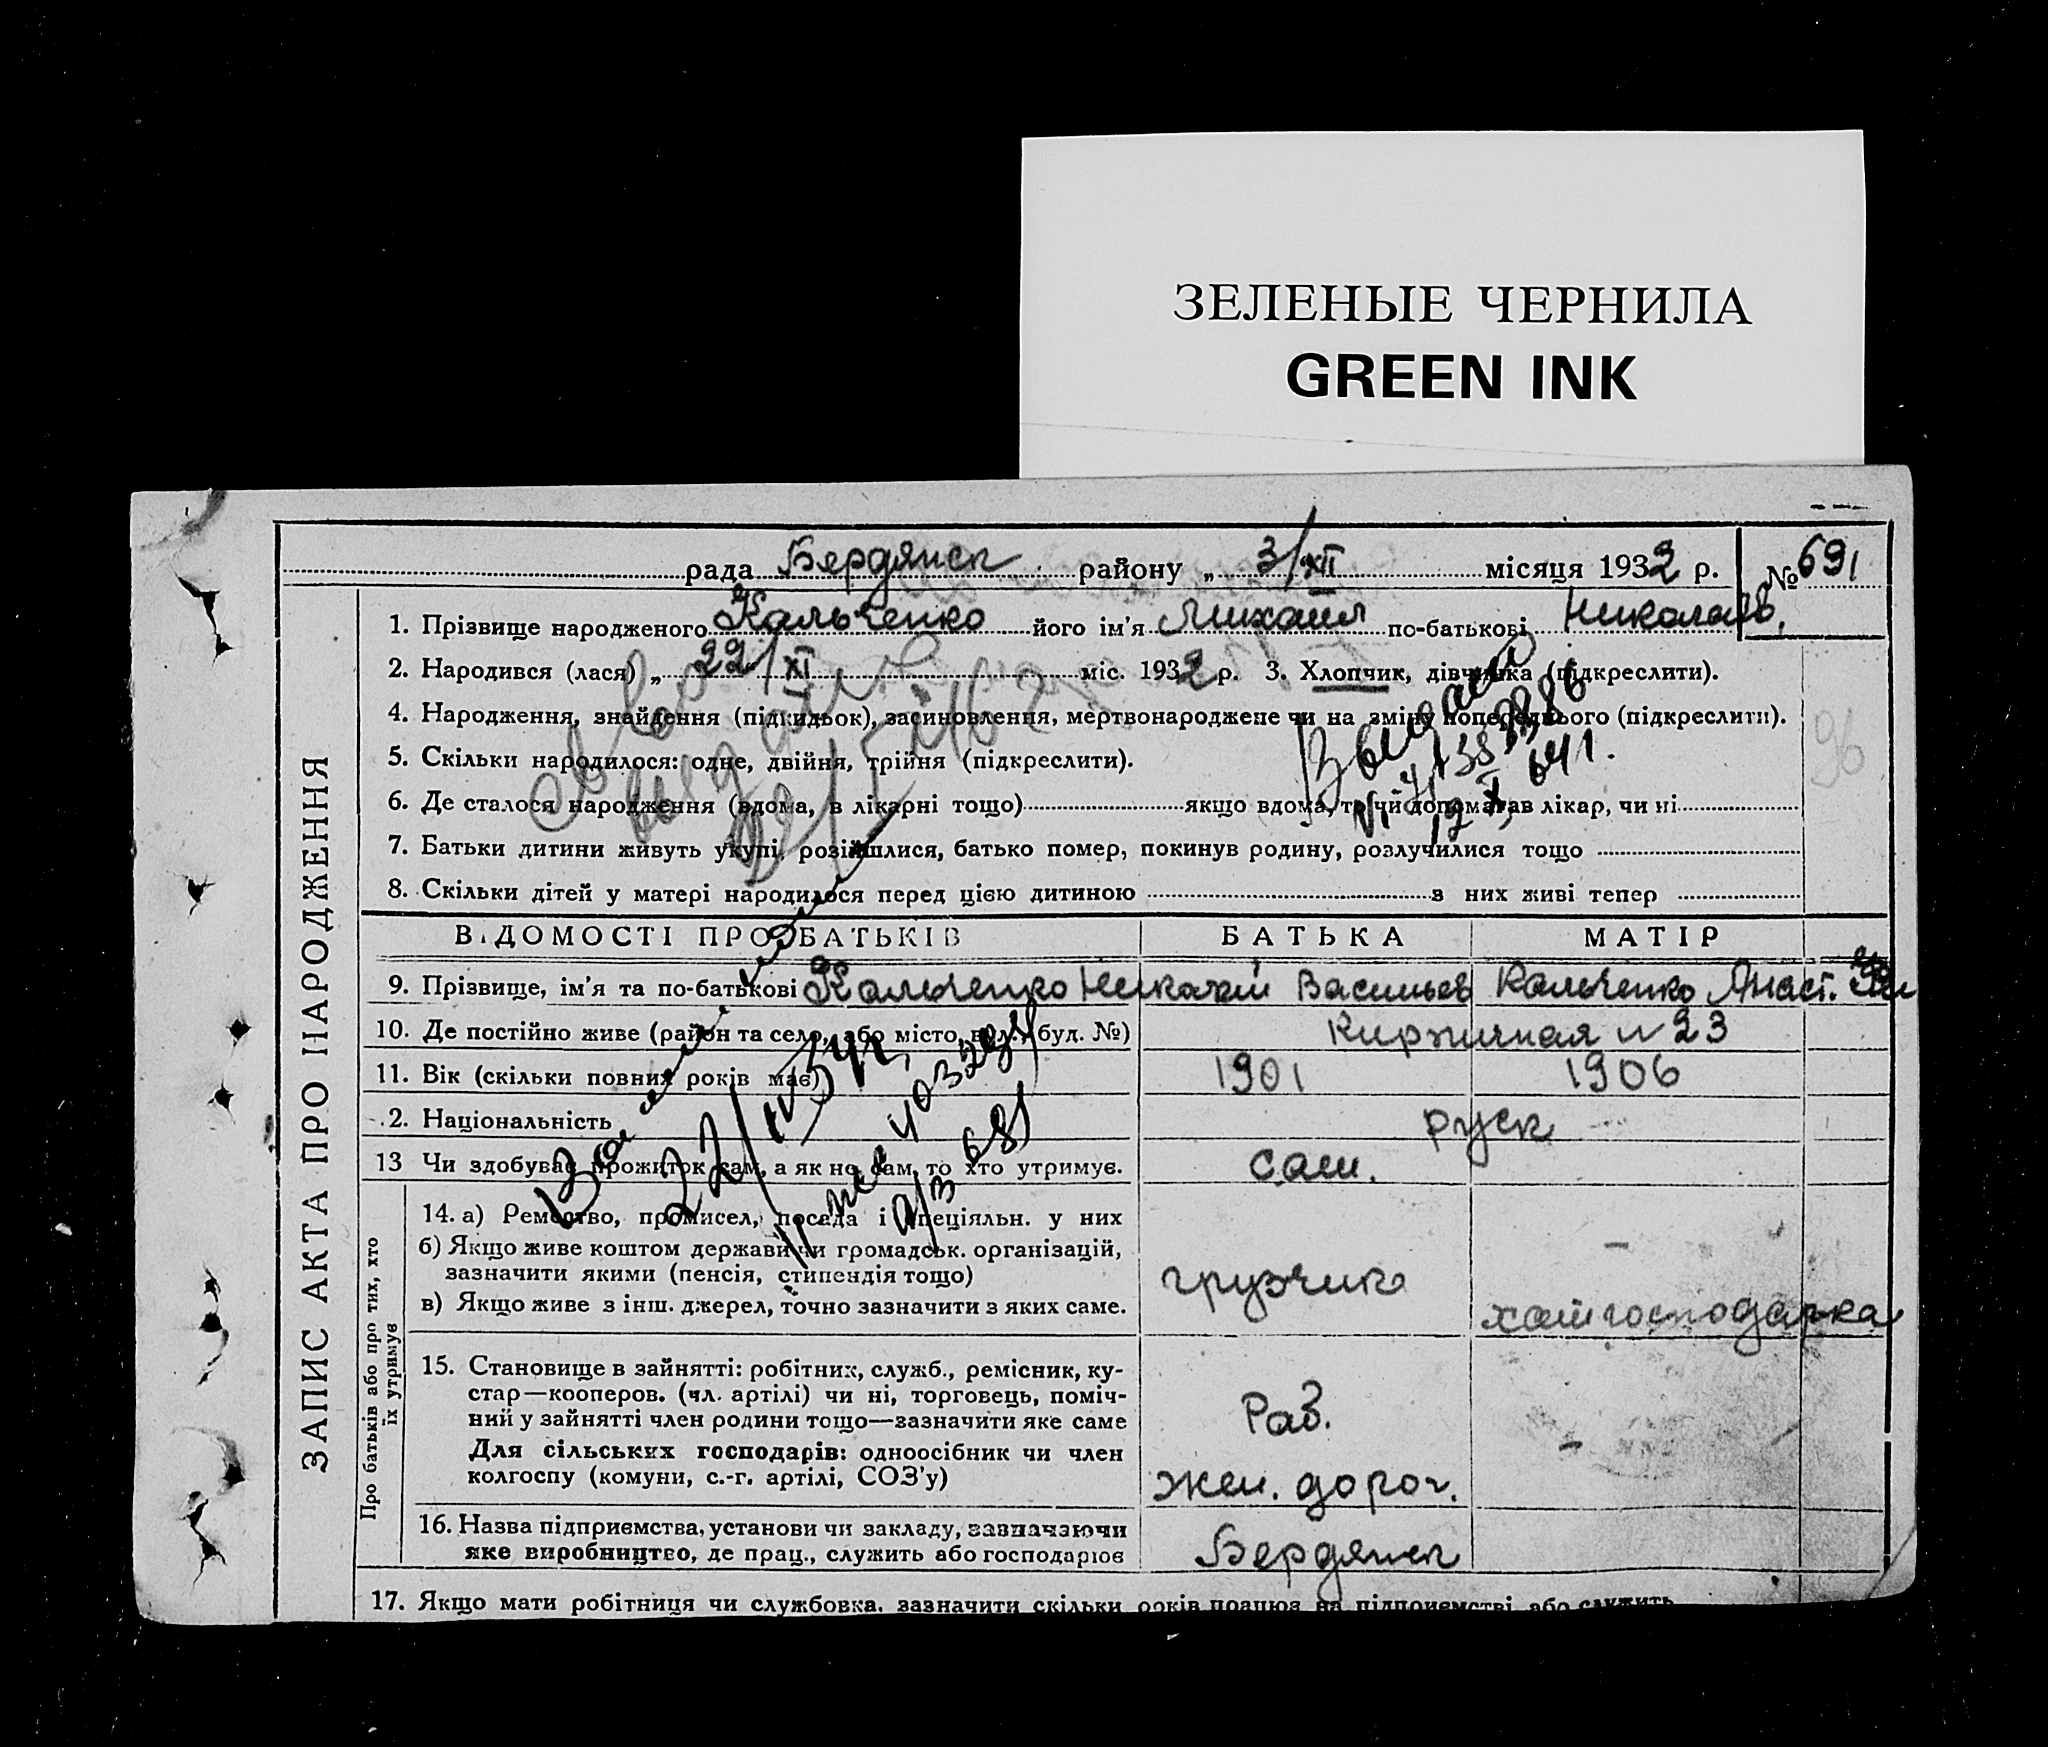 ЗЕЛЕНЫЕ ЧЕРНИЛА
GREEN INK
рада Бердянск району „ 3/XII місяця 1932 р. № 691
1. Прізвище народженого Кальченко його ім'я Михаил по-батькові Николаев.
2. Народився (лася) „ 22/XI міс. 1932 р. 3. Хлопчик, дівчинка (підкреслити).
4. Народження, знайдення (підкидьок), засиновлення, мертвонароджене чи на зміну попереднього (підкреслити).
5. Скільки народилося: одне, двійня, трійня (підкреслити).
6. Де сталося народження (вдома, в лікарні тощо) якщо вдома, то чи допомагав лікар, чи ні
7. Батьки дитини живуть укупі, розійшлися, батько помер, покинув родину, розлучилися тощо
8. Скільки дітей у матері народилося перед цією дитиною з них живі тепер
96
ЗАПИС АКТА ПРО НАРОДЖЕННЯ
ВІДОМОСТІ ПРО БАТЬКІВ БАТЬКА МАТІР
9. Прізвище, ім'я та по-батькові Кальченко Николай Васильев Кальченко Анаст.
10. Де постійно живе (район та село, або місто, вул., буд. №) Кирпичная № 23
11. Вік (скільки повних років має) 1901 1906
2. Національність руск
13 Чи здобуває прожиток сам, а як не сам, то хто утримує. сам.
Про батьків або про тих, хто їх утримує
14. а) Ремество, промисел, посада і спеціяльн. у них
б) Якщо живе коштом держави чи громадськ. організацій,
зазначити якими (пенсія, стипендія тощо) грузчик
в) Якщо живе з інш. джерел, точно зазначити з яких саме. хатнгосподарка
15. Становище в зайнятті: робітник, служб., ремісник, ку-
стар—кооперов. (чл. артілі) чи ні, торговець, поміч-
ний у зайнятті член родини тощо—зазначити яке саме Раб.
Для сільських господарів: одноосібник чи член
колгоспу (комуни, с.-г. артілі, СОЗ'у) жел. дорог.
16. Назва підприємства, установи чи закладу, зазначаючи
яке виробництво, де прац., служить або господарює Бердянск
17. Якщо мати робітниця чи службовка, зазначити скільки років працює на підприємстві або служить